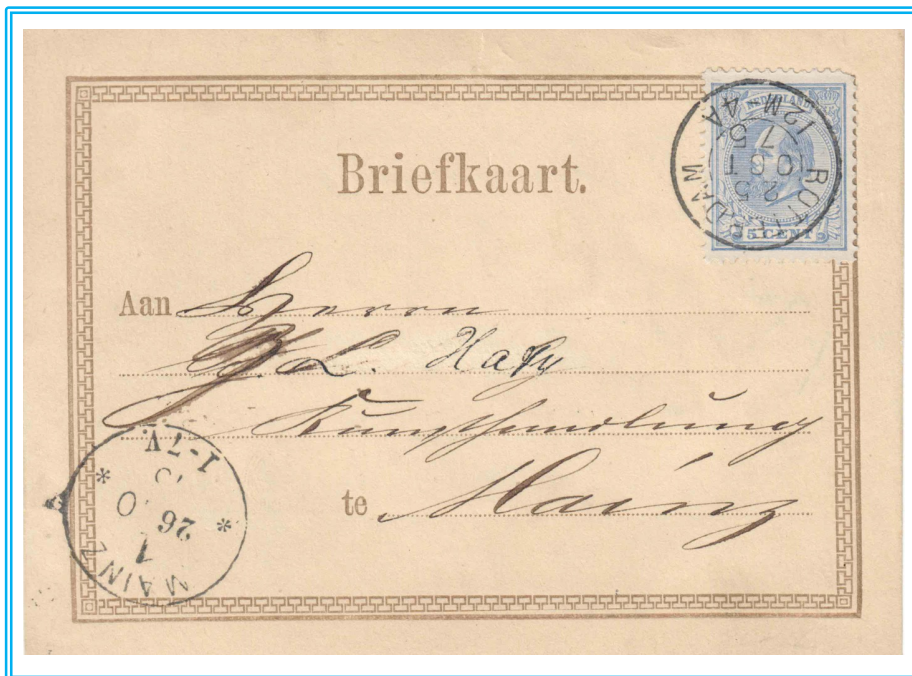 Briefkaart.
NEDERLAND
5 CENT
ROTTERDAM
25
OCT
75
12M-4A
Aan Herrn
L. Hafy
Kunsthandlung
te Mainz
MAINZ
1
26
I-7V.